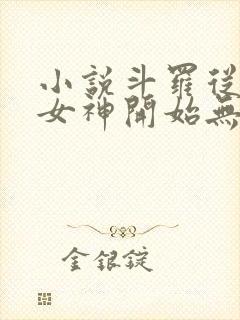 小說斗羅從
女神開始無
金銀錠